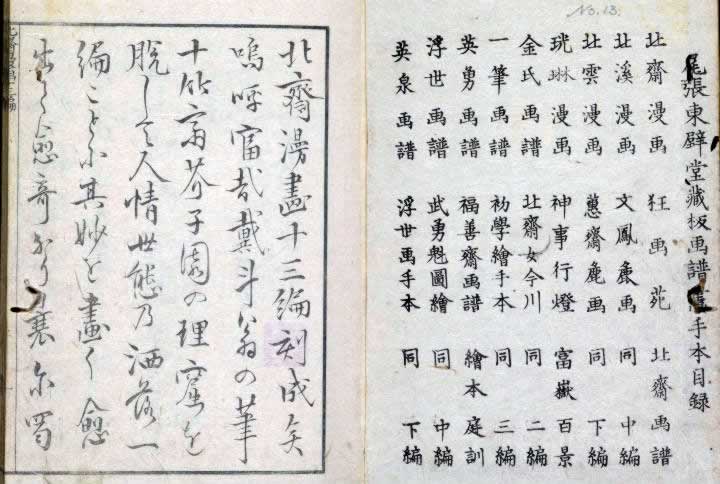 No. 13.
尾張東壁堂藏板画譜手本目録
北齋漫画 狂画苑 北齋画譜
北溪漫画 文鳳麁画 同 中編
北雲漫画 蕙齋麁画 同 下編
珖琳漫画 神事行燈 富嶽百景
金氏画譜 北齋女今川 同 二編
一筆画譜 初學繪手本 同 三編
英勇画譜 福善齋画譜 繪本庭訓
浮世画譜 武勇魁圖繪 同 中編
英泉画譜 浮世画手本 同 下編
北齋漫畫十三編刻成矣
嗚呼富哉戴斗翁の筆
十竹齋芥子園の理窟を
脱して人情世態乃洒落一
編ことに其妙を畫く愈
出て愈奇なり襄尓蜀